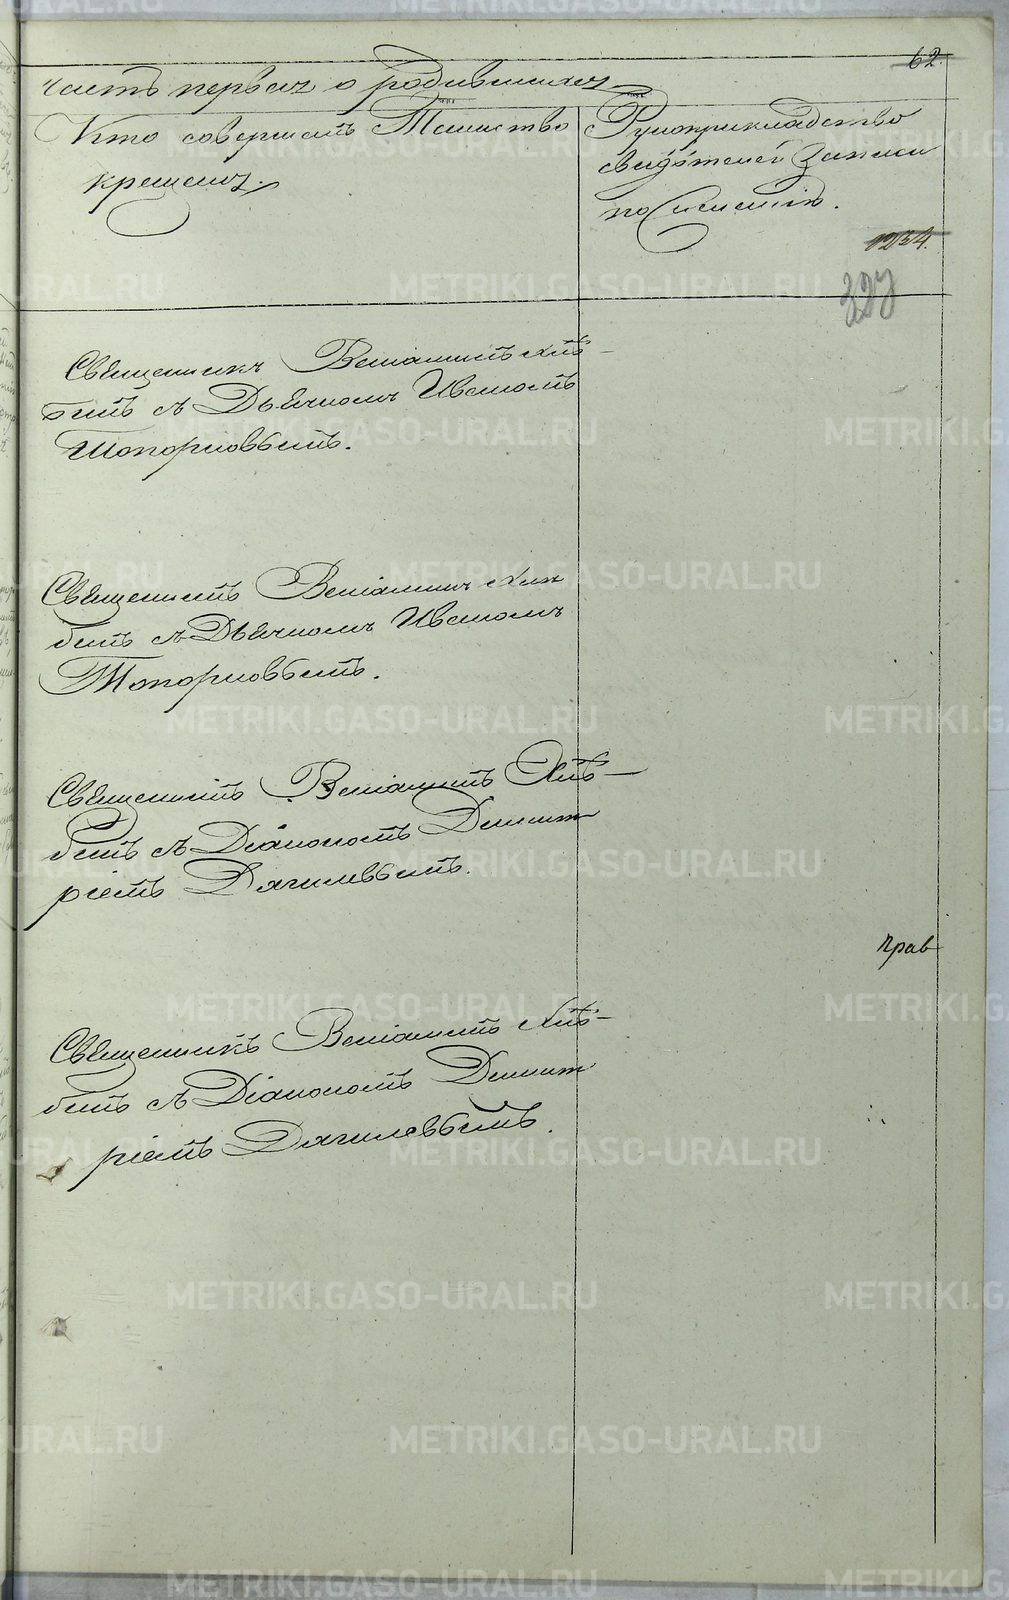 62.
часть первая о родившихся
Кто совершалъ Таинство
крещенія.
Рукоприкладство
свидѣтелей записи
по желанію.
1234.
327
Священникъ Веніаминъ Хлѣ-
бинъ съ Дьячкомъ Иваномъ
Топорковымъ.
Священникъ Веніаминъ Хлѣ
бинъ съ Дьячкомъ Иваномъ
Топорковымъ.
Священникъ Веніаминъ Хлѣ-
бинъ съ Діакономъ Димит
ріемъ Дягилевымъ.
Священникъ Веніаминъ Хлѣ-
бинъ съ Діакономъ Димит
ріемъ Дягилевымъ.
прав
METRIKI.GASO-URAL.RU